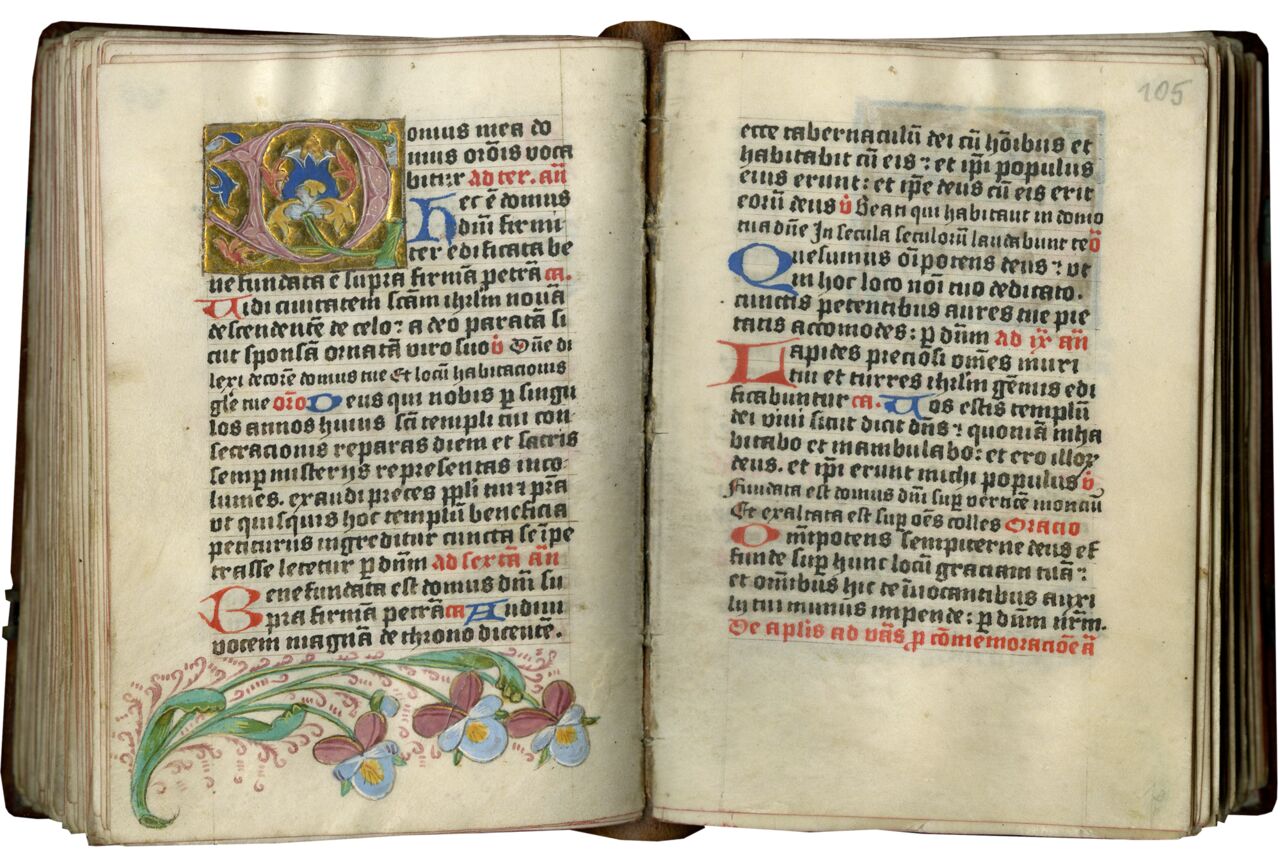 Domus mea do
mus orōis voca
bitur ad ter. añ
Hec ē domus
dñi firmi
ter edificata be
ne fundata ē supra firmā petrā ca.
Uidi ciuitatem scām ihrlm nouā
descendentē de celo: a deo paratā si
cut sponsā ornatā viro suo v̄ Dn̄e di
lexi decorē domus tue Et locū habitacionis
glē tue or̄o Deus qui nobis p singu
los annos huius sc̄i templi tui con
secracionis reparas diem et sacris
semp misterijs representas inco
lumes. exaudi preces ppli tui ⁊ pr̄a
vt quisquis hoc templū beneficia
petiturus ingreditur cuncta se īpe
trasse letetur p dn̄m ad sextā añ
Bene fundata est domus dn̄i su
pra firmā petrā ca Audiui
vocem magnā de throno dicentē.
105
ecce tabernaculū dei cū hōibus et
habitabit cū eis ⁊ et ip̄i populus
eius erunt: et ip̄e deus cū eis erit
eorū deus v̄ Beati qui habitant in domo
tua dn̄e In secula seculorū laudabunt te ō
Quesumus oīpotens deus ⁊ vt
in hoc loco nōi tuo dedicato.
cunctis petentibus aures tue pie
tatis accomodes: p dn̄m ad ix añ
Lapides preciosi om̄es muri
tui et turres ihrlm gēmis edi
ficabuntur ca. Uos estis templū
dei viui sicut dicit dn̄s ⁊ quoniā inha
bitabo et inambulabo: et ero illoꝝ
deus. et ip̄i erunt michi populus v̄
Fundata est domus dn̄i sup verticē montiū
Et exaltata est sup oēs colles Oracio
Omīpotens sempiterne deus ef
funde sup hunc locū graciam tuā:
et omībus hic te īuocantibus auxi
lij tui munus impende: p dn̄m nr̄m.
De aplis ad vās p cōmemoracioē ā